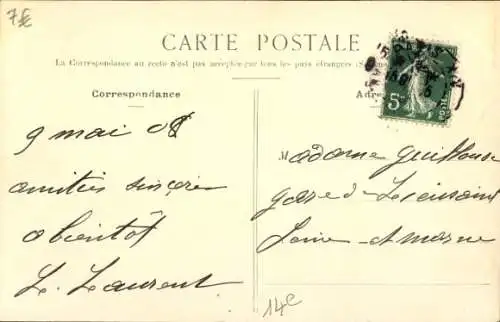 7€
CARTE POSTALE
La Correspondance au recto n'est pas acceptée par tous les pays étrangers (S
Correspondance
Adre
5c
9 mai 08
amitiés sincères
a bientôt
L. Laurent
Madame Guillou
gare de Lieusaint
Seine et marne
14€